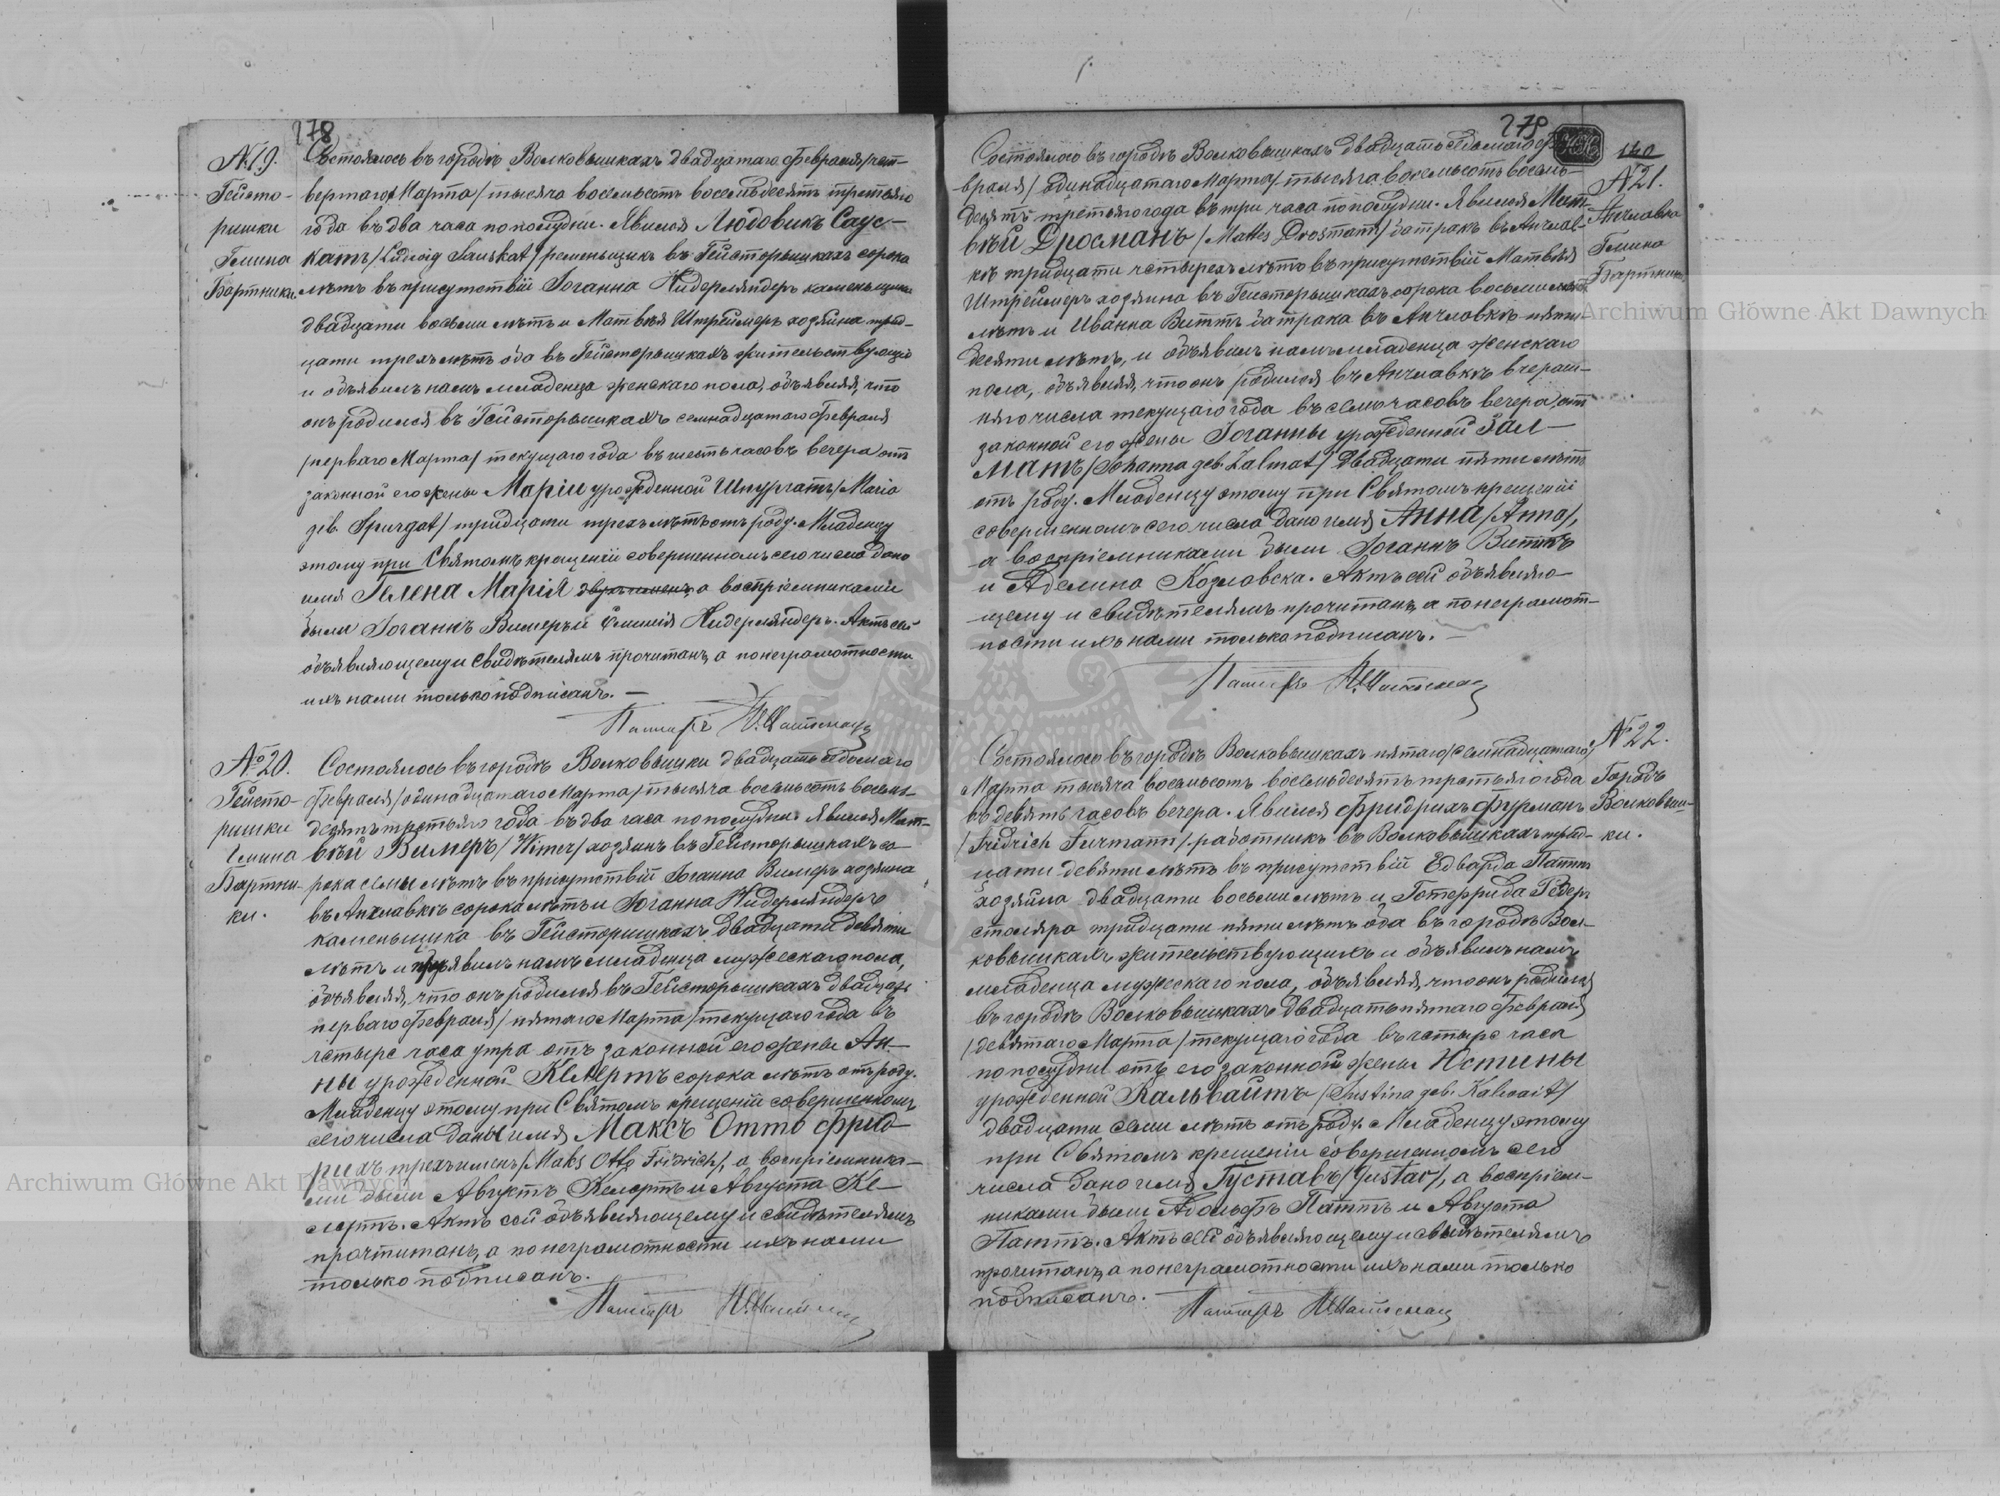 278
№19.
Гейсто-
ришки
Гмина
Бартники
Состоялось въ городѣ Волковышкахъ двадцатаго Февраля/чет-
вертаго Марта/ тысяча восемьсотъ восемьдесятъ третьяго
года въ два часа по полудни. Явился Людовикъ Саус-
катъ/Ludwig Sauskat/ ременьщикъ въ Гейсторышкахъ сорока
лѣтъ въ присутствіи Іоганна Нидерляндеръ каменьщика
двадцати восьми лѣтъ и Матвѣя Штреймеръ хозяина трид-
цати трехъ лѣтъ оба въ Гейсторышкахъ жительствующіе
и объявилъ намъ младенца женскаго пола, объявляя, что
онъ родился въ Гейсторышкахъ семнадцатаго Февраля
/перваго Марта/ текущаго года въ шесть часовъ вечера отъ
законной его жены Маріи урожденной Шпургатъ/Maria
geb. Spurgat/ тридцати трехъ лѣтъ отъ роду. Младенцу
этому при Святомъ крещеніи совершенномъ сего числа дано
имя Гелена Марія двухъ именъ а воспріемниками
были Іоганнъ Вимеръ и Емилія Нидерляндеръ. Актъ сей
объявляющему и свидѣтелямъ прочитанъ, а по неграмотности
ихъ нами только подписанъ. —
Пасторъ
№20.
Гейсто-
ришки
Гмина
Бартни-
ки.
Состоялось въ городѣ Волковышки двадцать седьмаго
Февраля/одинадцатаго Марта/ тысяча восемьсотъ восемь-
десятъ третьяго года въ два часа по полудни. Явился Мат-
вѣй Вимеръ/Wimer/ хозяинъ въ Гейсторышкахъ со-
рока семы лѣтъ въ присутствіи Іоганна Вимеръ хозяина
въ Анчлавкѣ сорока лѣтъ и Іоганна Нидерляндеръ
каменьщика въ Гейсторишкахъ двадцати девяти
лѣтъ и объявилъ намъ младенца мужескаго пола,
объявляя, что онъ родился въ Гейсторышкахъ двадцать
перваго Февраля/ пятаго Марта/ текущаго года въ
четыре часа утра отъ законной его жены Ан-
ны урожденной Кемертъ сорока лѣтъ отъ роду.
Младенцу этому при Святомъ крещеніи совершенномъ
сего числа даны имя Максъ Отто Фрид-
рихъ трехъ именъ/Maks Otto Fridrich/, а воспріемника-
ми были Августъ Кемертъ и Августа Ке-
мертъ. Актъ сей объявляющему и свидѣтелямъ
прочтитанъ, а по неграмотности ихъ нами
только подписанъ.
Пасторъ
279
140
№21.
Анчлавка
Гмина
Бартники
Состоялось въ городѣ Волковышкахъ двадцать седьмаго Фе-
враля/ одинадцатаго Марта/ тысяча восемьсотъ восемь-
десятъ третьяго года въ три часа по полудни. Явился Мат-
вѣй Дросманъ/Mattes Drosmann/ батракъ въ Анчлав-
кѣ тридцати четырехъ лѣтъ въ присутствіи Матвѣя
Штреймеръ хозяина въ Гейсторышкахъ сорока восьми
лѣтъ и Ивана Виттъ батрака въ Анчлавкѣ пяти-
десяти лѣтъ, и объявилъ намъ младенца женскаго
пола, объявляя, что онъ родился въ Анчлавкѣ вчераш-
няго числа текущаго года въ семь часовъ вечера, отъ
законной его жены Іоганны урожденной Зал-
матъ/Johanna geb. Zalmat/ двадцати пяти лѣтъ
отъ роду. Младенцу этому при Святомъ крещеніи
совершенномъ сего числа дано имя Анна/Anna/,
а воспріемниками были Іоганнъ Виттъ
и Аделина Козловска. Актъ сей объявляю-
щему и свидѣтелямъ прочитанъ, а по неграмот-
ности ихъ нами только подписанъ. —
Пасторъ
№22.
Городъ
Волковыш-
ки.
Состоялось въ городѣ Волковышкахъ пятаго/семнадцатаго/
Марта тысяча восемьсотъ восемьдесятъ третьяго года
въ девять часовъ вечера. Явился Фридрихъ Фурманъ
/Fridrich Furmann/ работникъ въ Волковышкахъ трид-
цати девяти лѣтъ въ присутствіи Едварда Паттъ
хозяина двадцати восьми лѣтъ и Готефрида
столяра тридцати пяти лѣтъ оба въ городѣ Вол-
ковышкахъ жительствующихъ и объявилъ намъ
младенца мужескаго пола, объявляя, что онъ родился
въ городѣ Волковышкахъ двадцать пятаго Февраля
/девятаго Марта/ текущаго года въ четыре часа
по полудни отъ его законной жены Юстины
урожденной Кальвайтъ/Justina geb. Kalwait/
двадцати семи лѣтъ отъ роду. Младенцу этому
при Святомъ крещеніи совершенномъ сего
числа дано имя Густавъ/Gustav/, а воспріем-
никами были Адольфъ Паттъ и Августа
Паттъ. Актъ сей объявляющему и свидѣтелямъ
прочитанъ, а по неграмотности ихъ нами только
подписанъ.
Пасторъ
Archiwum Główne Akt Dawnych
Archiwum Główne Akt Dawnych